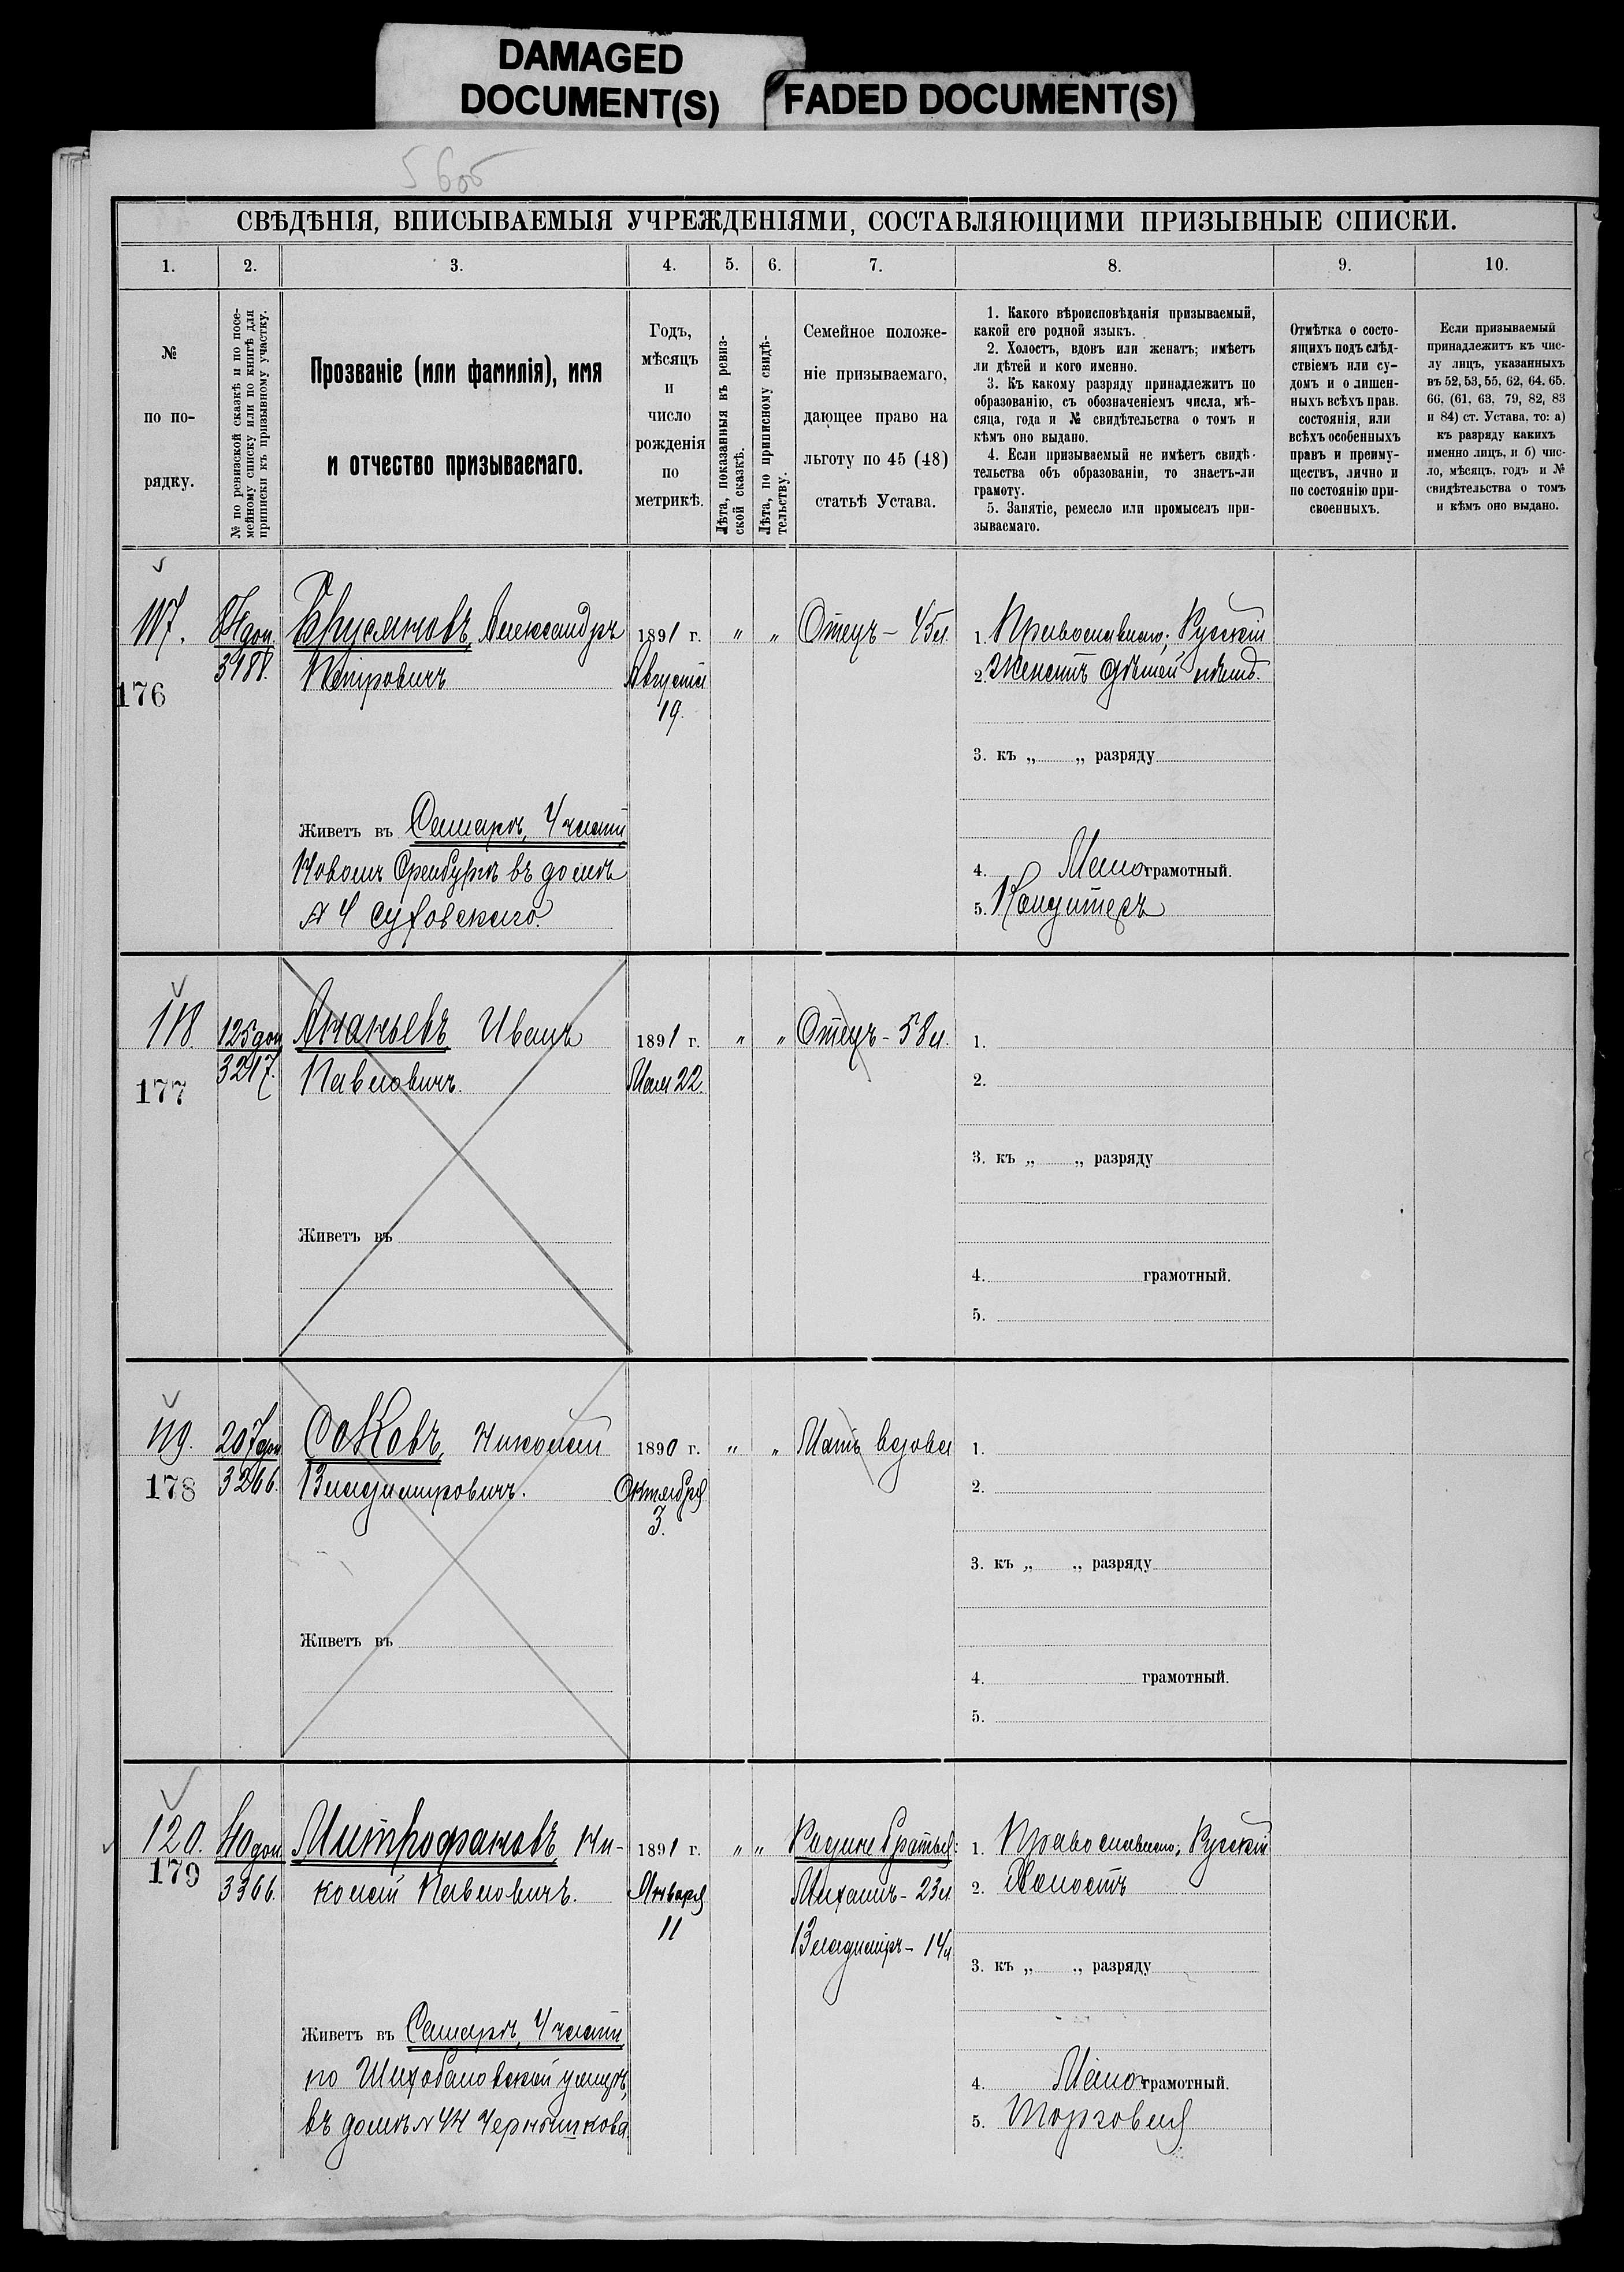 DAMAGED
DOCUMENT(S)
FADED DOCUMENT(S)
56об
СВѢДѢНІЯ, ВПИСЫВАЕМЫЯ УЧРЕЖДЕНІЯМИ, СОСТАВЛЯЮЩИМИ ПРИЗЫВНЫЕ СПИСКИ.
1.
2.
3.
4.
5.
6.
7.
8.
9.
10.
№
по по-
рядку.
№ по ревизской сказкѣ и по посе-
мейному списку или по книгѣ для
приписки къ призывному участку.
Прозваніе (или фамилія), имя
и отчество призываемаго.
Годъ,
мѣсяцъ
и
число
рожденія
по
метрикѣ.
Лѣта, показанныя въ ревиз-
ской сказкѣ.
Лѣта, по приписному свидѣ-
тельству.
Семейное положе-
ніе призываемаго,
дающее право на
льготу по 45 (48)
статьѣ Устава.
1. Какого вѣроисповѣданія призываемый,
какой его родной языкъ.
2. Холостъ, вдовъ или женатъ; имѣетъ
ли дѣтей и кого именно.
3. Къ какому разряду принадлежитъ по
образованію, съ обозначеніемъ числа, мѣ-
сяца, года и № свидѣтельства о томъ и
кѣмъ оно выдано.
4. Если призываемый не имѣетъ свидѣ-
тельства объ образованіи, то знаетъ-ли
грамоту.
5. Занятіе, ремесло или промыселъ при-
зываемаго.
Отмѣтка о состо-
ящихъ подъ слѣд-
ствіемъ или су-
домъ и о лишен-
ныхъ всѣхъ прав.
состоянія, или
всѣхъ особенныхъ
правъ и преиму-
ществъ, лично и
по состоянію при-
своенныхъ.
Если призываемый
принадлежитъ къ чис-
лу лицъ, указанныхъ
въ 52, 53, 55, 62, 64. 65.
66, (61, 63, 79, 82, 83
и 84) ст. Устава, то: а)
къ разряду какихъ
именно лицъ, и б) чис-
ло, мѣсяцъ, годъ и №
свидѣтельства о томъ
и кѣмъ оно выдано.
117.
176
доп.
3188.
Бруслновъ, Александръ
Петровичъ
1891 г.
Августа
19.
„ „
Отецъ - 45л
1. Православнаго; Русскій
2. Женатъ дѣтей нѣтъ.
3. къ „ „ разряду
Живетъ въ Самарѣ, 4 части,
Новомъ Оренбургѣ въ домѣ
№ 4 Суховскаго.
4. Малограмотный.
5. Кондитеръ
118.
177
125 доп
3217.
Ананьевъ, Иванъ
Павловичъ.
1891 г.
Мая 22.
„ „
Отецъ - 58л.
1.
2.
3. къ „ „ разряду
Живетъ въ
4. грамотный.
5.
119.
178
207 доп
3266.
Соковъ, Николай
Владимировичъ.
1890 г.
Октября
3.
„ „
Мать вдова
1.
2.
3. къ „ „ разряду
Живетъ въ
4. грамотный.
5.
120.
179
доп
3366.
Митрофановъ, Ни-
колай Павловичъ.
1891 г.
Января
11
„ „
Родные братья:
Михаилъ - 23л
Владиміръ - 14л
1. Православнаго; Русскій
2. Холостъ
3. къ „ „ разряду
Живетъ въ Самарѣ, 4 части,
по Шихобаловской улицѣ,
въ домѣ № 44 Чернышкова.
4. Малограмотный.
5. Торговля